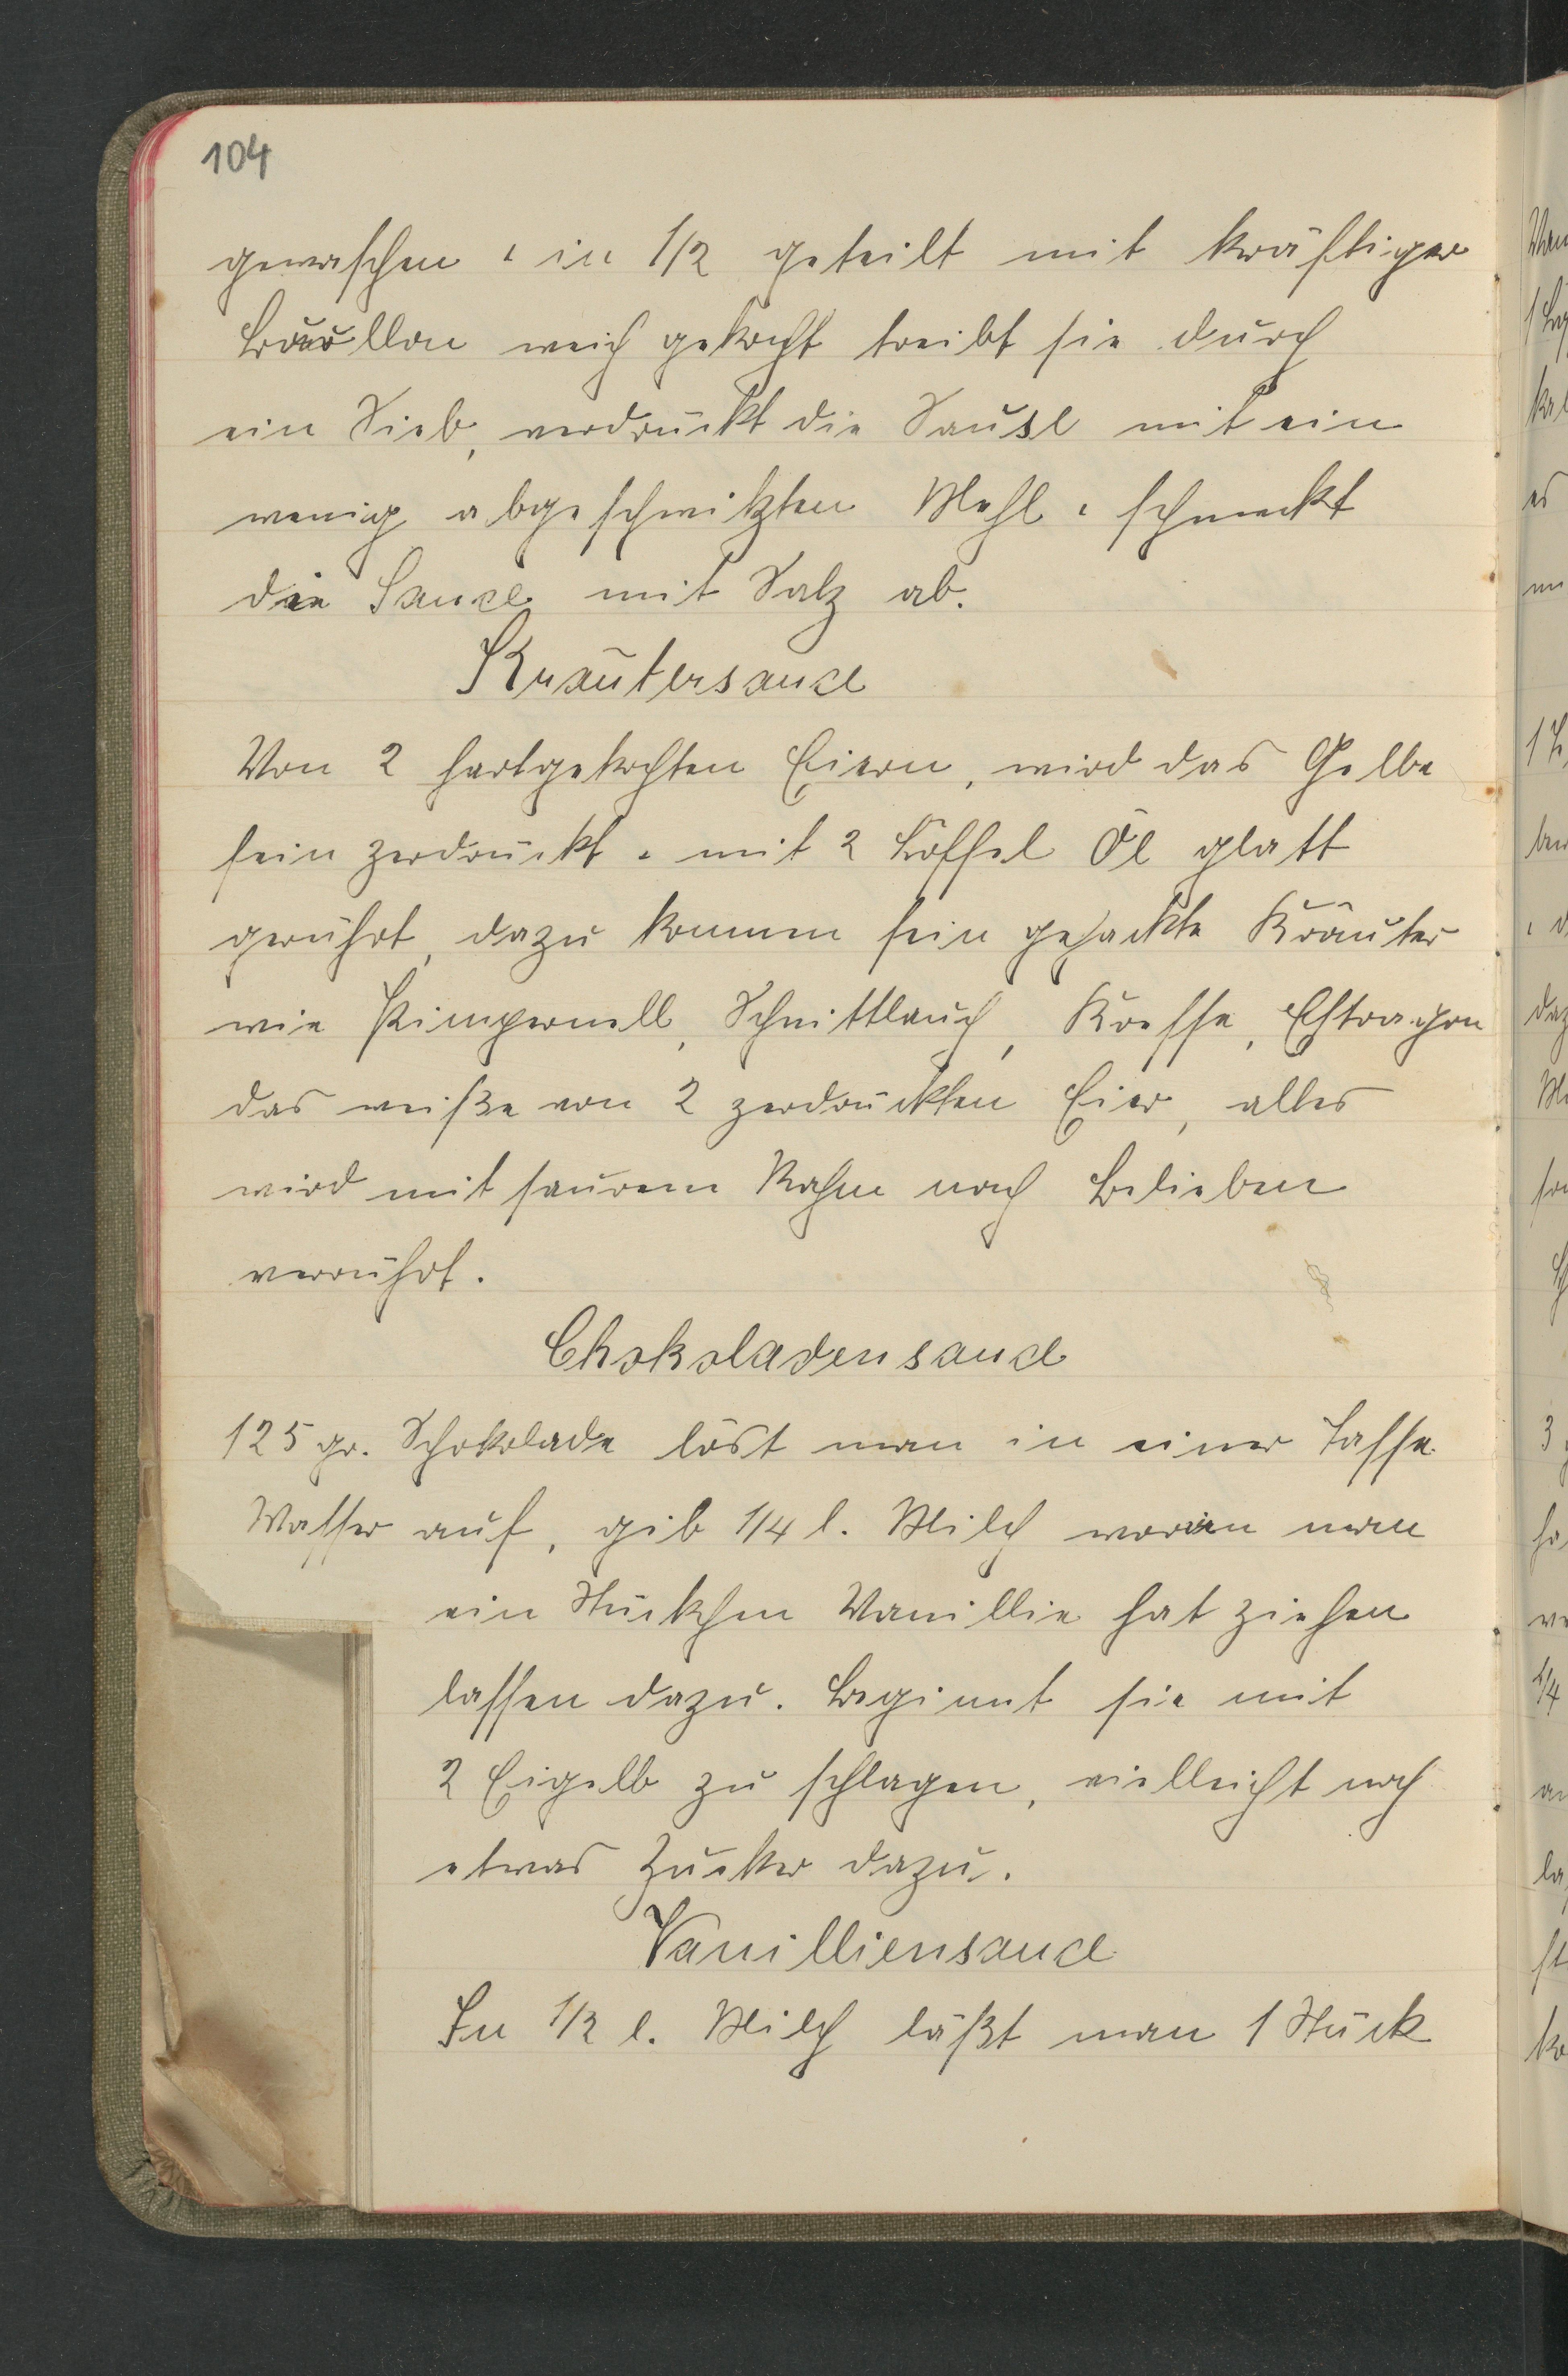 104
gewaschen u in 1/2 geteilt mit kräftiger
Bouillon weich gekocht treibt sie durch
ein Sieb, verdrückt die Sause mit ein
wenig abgeschwitzten Mehl u schmeckt
die Sauce mit Salz ab.
Kräutersauce
Von 2 hartgekochten Eiern, wird das Gelbe
fein zerdrückt u mit 2 Löffel Öl glatt
gerührt, dazu kommen fein gehackte Kräuter
wie Pimpernell, Schnittlauch, Kresse, Estragon
das weiße von 2 zerdrückten Eier, alles
wird mit saurem Rahm nach Belieben
verrührt.
Chokoladensauce
125 gr. Schokolade löst man in einer Tasse
Wasser auf, gib 1/4 l. Milch worin man
ein Stückchen Vanillie hat ziehen
lassen dazu. Beginnt sie mit
2 Eigelb zu schlagen, vielleicht noch
etwas Zucker dazu.
Vanilliensauce
In 1/2 l. Milch läßt man 1 Stück